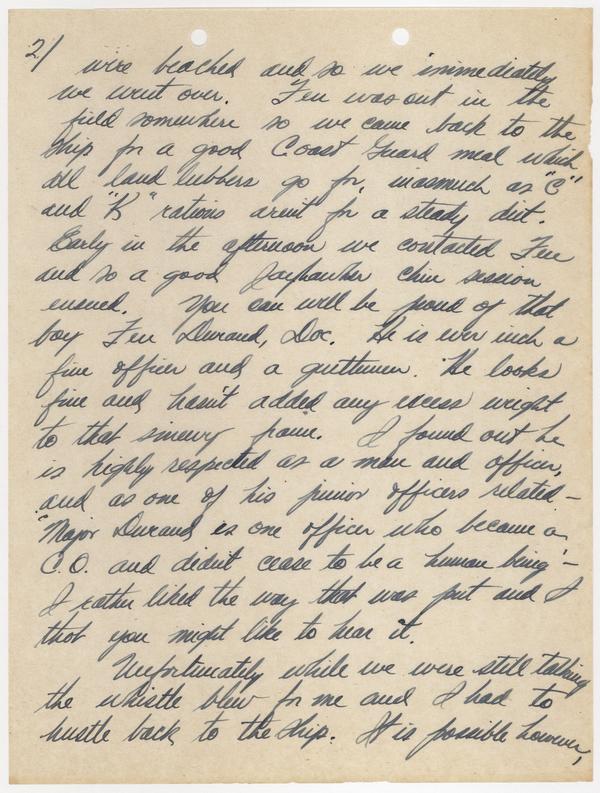 2/
were beached and so we immediately
we went over. Fen was out in the
field somewhere so we came back to the
ship for a good Coast Guard meal which
all land lubbers go for, inasmuch as "C"
and "K" rations arent for a steady diet.
Early in the afternoon we contacted Fen
and so a good Jayhawker chin session
ensued. You can well be proud of that
boy Fen Durand, Doc. He is ever inch a
fine officer and a gentleman. He looks
fine and hasn't added any excess weight
to that sinewy frame. I found out he
is highly respected as a man and officer,
and as one of his junior officers related –
"Major Durand is one officer who became a
C.O. and didn't cease to be a human being" –
I rather liked the way that was put and I
thot you might like to hear it.
Unfortunately while we were still talking
the whistle blew for me and I had to
hustle back to the ship. It is possible however,